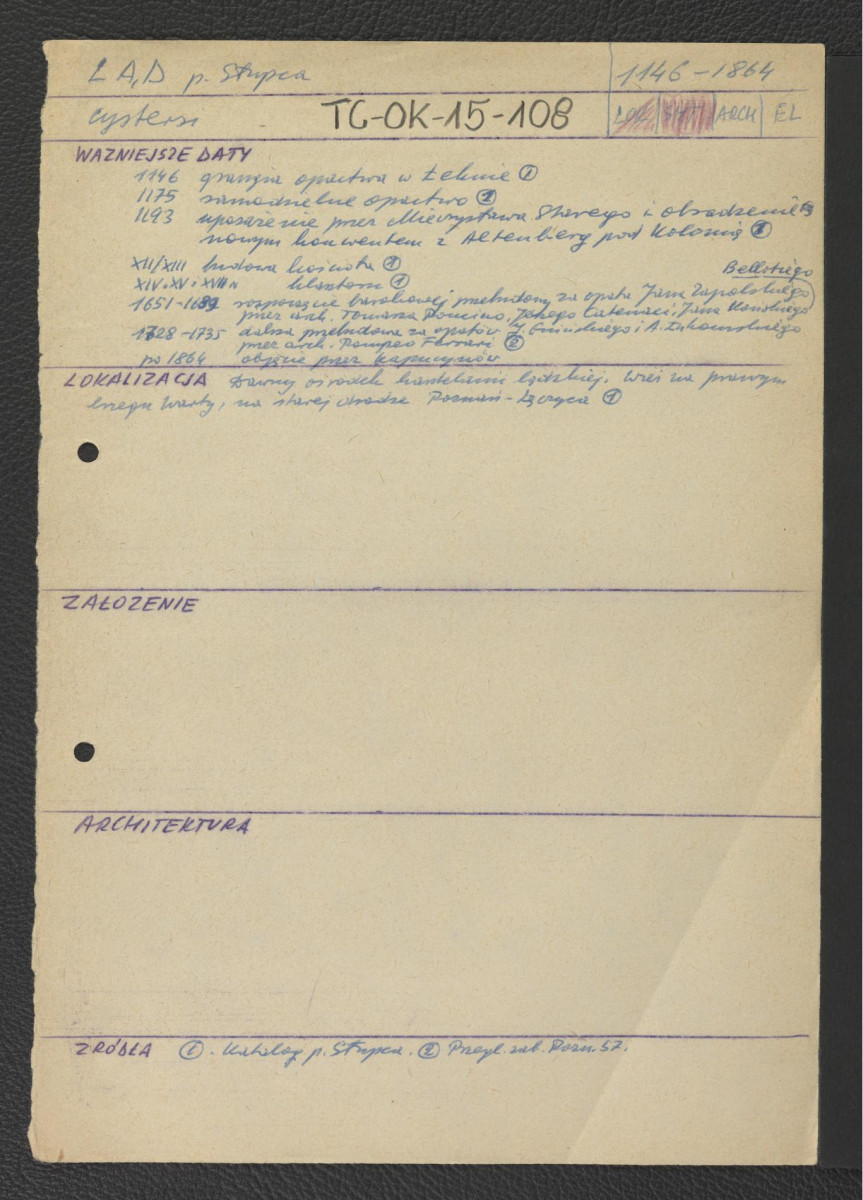 LĄD p. Słupca
1146-1864
cystersi
TG-OK-15-108
LOK SYT ARCH EL
WAŻNIEJSZE DATY
1146 grangia opactwa w Łeknie ①
1175 samodzielne opactwo ②
1193 uposażenie przez Mieczysława Starego i obsadzenie
nowym konwentem z Altenberg pod Kolonią ②
XII/XIII budowa kościoła ①
XIV i XV i XVII w klasztoru ①
Bellotiego
1651-1689 rozpoczęcie barokowej przebudowy za opata Jana Zapolskiego
przez arch. Tomasza Poncino, Jerzego Catenaci, Jana Końskiego
1728-1735 dalsza przebudowa za opatów J. Gnińskiego i A. Łukomskiego
przez arch. Pompeo Ferrari ②
po 1864 objęcie przez Kapucynów
LOKALIZACJA Dawny ośrodek kasztelanii lędzkiej. Wieś na prawym
brzegu Warty, na starej drodze Poznań-Łęczyca ①
ZAŁOŻENIE
ARCHITEKTURA
ŹRÓDŁA ①. Katalog p. Słupca. ② Przegl. zab. Pozn. 57.